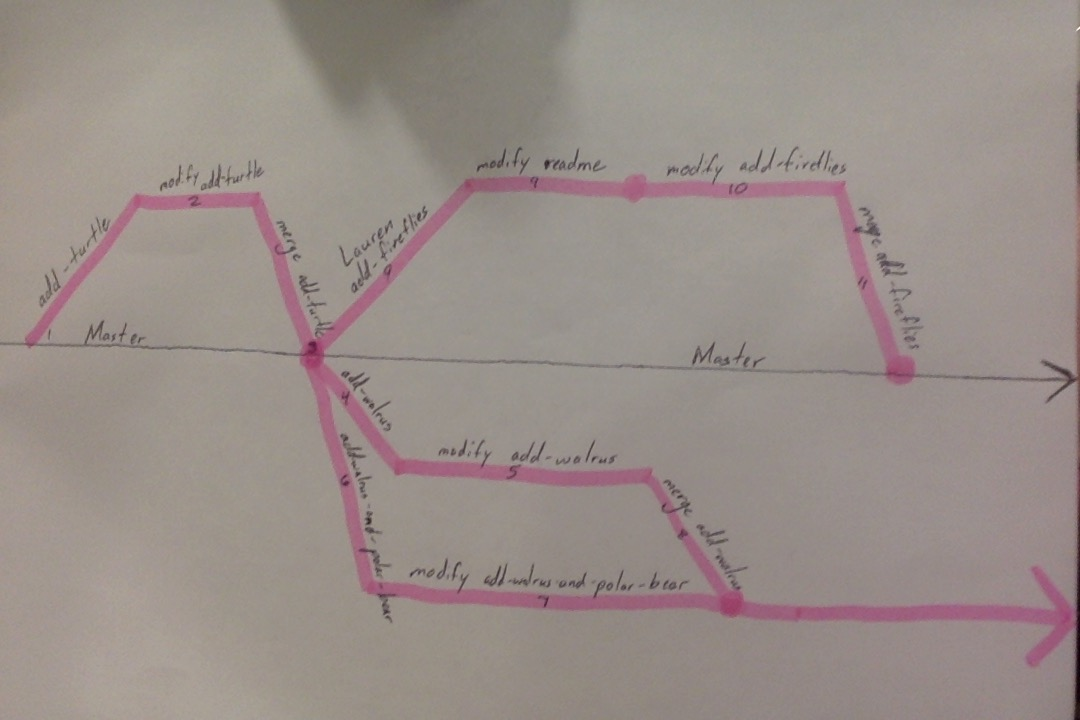 add-turtle
1
Master
modify add-turtle
2
merge add-turtle
3
Lauren
add-fireflies
9
modify readme
9
modify add-fireflies
10
merge add-fireflies
11
Master
add-walrus
4
modify add-walrus
5
merge add-walrus
8
add-walrus-and-polar-bear
6
modify add-walrus-and-polar-bear
7